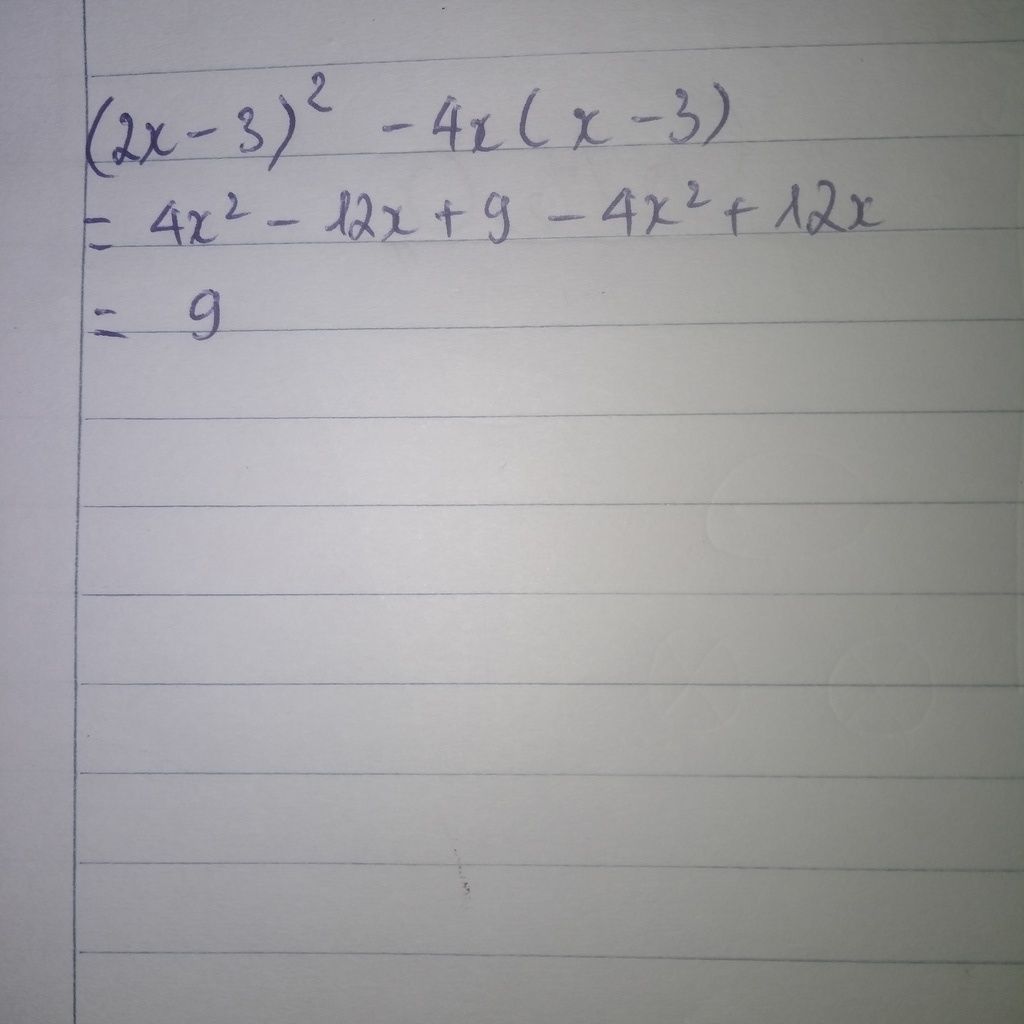 (2x - 3)² - 4x(x - 3)
= 4x² - 12x + 9 - 4x² + 12x
= 9